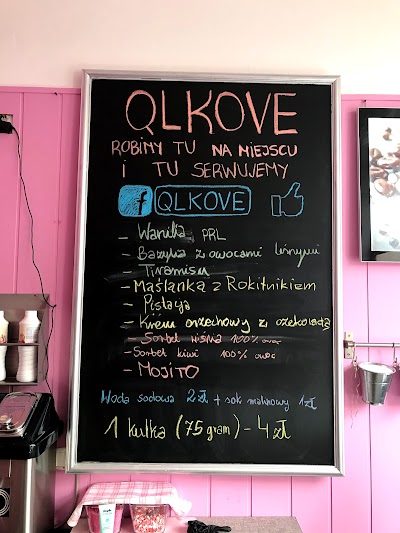 QLKOVE
ROBIMY TU NA MIEJSCU
I TU SERWUJEMY
f QLKOVE
- Wanilia PRL
- Bazylia z owocami leśnymi
- Tiramisu
- Maślanka z Rokitnikiem
- Pistacja
- Krem orzechowy z czekoladą
- Sorbet wiśnia 100% owoc
- Sorbet kiwi 100% owoc
- MOJITO
Woda sodowa 2 zł + sok malinowy 1 zł
1 kulka (75 gram) - 4 zł